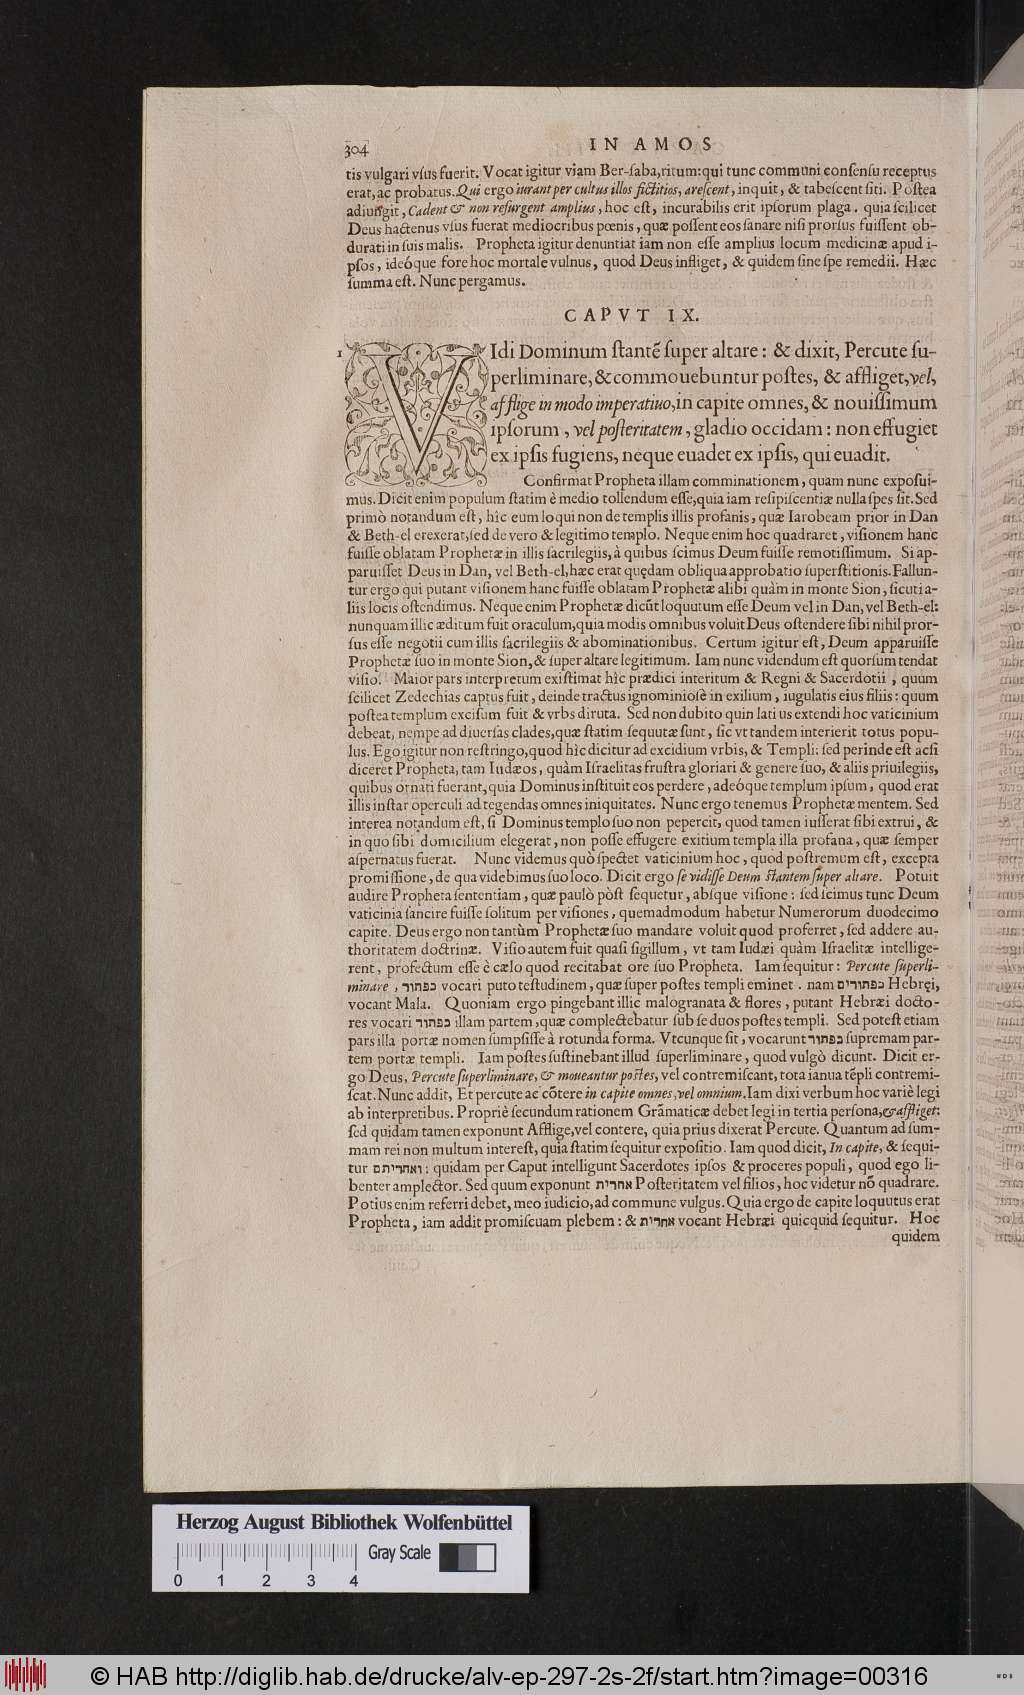 304
IN AMOS
tis vulgari vſus fuerit. Vocat igitur viam Ber-ſaba, ritum: qui tunc communi conſenſu receptus
erat, ac probatus. Qui ergo iurant per cultus illos fictitios, areſcent, inquit, & tabeſcent ſiti. Poſtea
adiungit, Cadent & non reſurgent amplius, hoc eſt, incurabilis erit ipſorum plaga. quia ſcilicet
Deus hactenus vſus fuerat mediocribus pœnis, quæ poſſent eos ſanare niſi prorſus fuiſſent ob-
durati in ſuis malis. Propheta igitur denuntiat iam non eſſe amplius locum medicinæ apud i-
pſos, ideóque fore hoc mortale vulnus, quod Deus infliget, & quidem ſine ſpe remedii. Hæc
ſumma eſt. Nunc pergamus.
CAPVT IX.
1 VIdi Dominum ſtantē ſuper altare: & dixit, Percute ſu-
perliminare, & commouebuntur poſtes, & affliget, vel,
afflige in modo imperatiuo, in capite omnes, & nouiſſimum
ipſorum, vel poſteritatem, gladio occidam: non effugiet
ex ipſis fugiens, neque euadet ex ipſis, qui euadit.
Confirmat Propheta illam comminationem, quam nunc expoſui-
mus. Dicit enim populum ſtatim è medio tollendum eſſe, quia iam reſipiſcentiæ nulla ſpes ſit. Sed
primò notandum eſt, hîc eum loqui non de templis illis profanis, quæ Iarobeam prior in Dan
& Beth-el erexerat, ſed de vero & legitimo templo. Neque enim hoc quadraret, viſionem hanc
fuiſſe oblatam Prophetæ in illis ſacrilegiis, à quibus ſcimus Deum fuiſſe remotiſſimum. Si ap-
paruiſſet Deus in Dan, vel Beth-el, hæc erat quędam obliqua approbatio ſuperſtitionis. Fallun-
tur ergo qui putant viſionem hanc fuiſſe oblatam Prophetæ alibi quàm in monte Sion, ſicuti a-
liis locis oſtendimus. Neque enim Prophetæ dicūt loquutum eſſe Deum vel in Dan, vel Beth-el:
nunquam illic æditum fuit oraculum, quia modis omnibus voluit Deus oſtendere ſibi nihil pror-
ſus eſſe negotii cum illis ſacrilegiis & abominationibus. Certum igitur eſt, Deum apparuiſſe
Prophetæ ſuo in monte Sion, & ſuper altare legitimum. Iam nunc videndum eſt quorſum tendat
viſio. Maior pars interpretum exiſtimat hîc prædici interitum & Regni & Sacerdotii, quum
ſcilicet Zedechias captus fuit, deinde tractus ignominioſè in exilium, iugulatis eius filiis: quum
poſtea templum exciſum fuit & vrbs diruta. Sed non dubito quin latius extendi hoc vaticinium
debeat, nempe ad diuerſas clades, quæ ſtatim ſequutæ ſunt, ſic vt tandem interierit totus popu-
lus. Ego igitur non reſtringo, quod hîc dicitur ad excidium vrbis, & Templi: ſed perinde eſt acſi
diceret Propheta, tam Iudæos, quàm Iſraelitas fruſtra gloriari & genere ſuo, & aliis priuilegiis,
quibus ornati fuerant, quia Dominus inſtituit eos perdere, adeóque templum ipſum, quod erat
illis inſtar operculi ad tegendas omnes iniquitates. Nunc ergo tenemus Prophetæ mentem. Sed
interea notandum eſt, ſi Dominus templo ſuo non pepercit, quod tamen iuſſerat ſibi extrui, &
in quo ſibi domicilium elegerat, non poſſe effugere exitium templa illa profana, quæ ſemper
aſpernatus fuerat. Nunc videmus quò ſpectet vaticinium hoc, quod poſtremum eſt, excepta
promiſſione, de qua videbimus ſuo loco. Dicit ergo ſe vidiſſe Deum ſtantem ſuper altare. Potuit
audire Propheta ſententiam, quæ paulò pòſt ſequetur, abſque viſione: ſed ſcimus tunc Deum
vaticinia ſancire fuiſſe ſolitum per viſiones, quemadmodum habetur Numerorum duodecimo
capite. Deus ergo non tantùm Prophetæ ſuo mandare voluit quod proferret, ſed addere au-
thoritatem doctrinæ. Viſio autem fuit quaſi ſigillum, vt tam Iudæi quàm Iſraelitæ intellige-
rent, profectum eſſe è cælo quod recitabat ore ſuo Propheta. Iam ſequitur: Percute ſuperli-
minare, כפתור vocari puto teſtudinem, quæ ſuper poſtes templi eminet. nam כפתורים Hebręi,
vocant Mala. Quoniam ergo pingebant illic malogranata & flores, putant Hebræi docto-
res vocari כפתור illam partem, quæ complectebatur ſub ſe duos poſtes templi. Sed poteſt etiam
pars illa portæ nomen ſumpſiſſe à rotunda forma. Vtcunque ſit, vocarunt כפתור ſupremam par-
tem portæ templi. Iam poſtes ſuſtinebant illud ſuperliminare, quod vulgò dicunt. Dicit er-
go Deus, Percute ſuperliminare, & moueantur poſtes, vel contremiſcant, tota ianua tēpli contremi-
ſcat. Nunc addit, Et percute ac cōtere in capite omnes, vel omnium. Iam dixi verbum hoc variè legi
ab interpretibus. Propriè ſecundum rationem Grāmaticæ debet legi in tertia perſona, & affliget:
ſed quidam tamen exponunt Afflige, vel contere, quia prius dixerat Percute. Quantum ad ſum-
mam rei non multum intereſt, quia ſtatim ſequitur expoſitio. Iam quod dicit, In capite, & ſequi-
tur ואחריתם: quidam per Caput intelligunt Sacerdotes ipſos & proceres populi, quod ego li-
benter amplector. Sed quum exponunt אחרית Poſteritatem vel filios, hoc videtur nō quadrare.
Potius enim referri debet, meo iudicio, ad commune vulgus. Quia ergo de capite loquutus erat
Propheta, iam addit promiſcuam plebem: & אחרית vocant Hebræi quicquid ſequitur. Hoc
quidem
Herzog August Bibliothek Wolfenbüttel
Gray Scale
0 1 2 3 4
© HAB http://diglib.hab.de/drucke/alv-ep-297-2s-2f/start.htm?image=00316